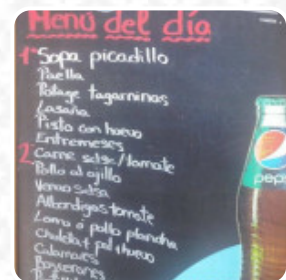 Menú del día
1º Sopa picadillo
Paella
Potage tagarninas
Lasaña
Pisto con huevo
Entremeses
2º Carne salsa/tomate
Pollo al ajillo
salsa
Albondigas tomate
Lomo o pollo plancha
Chuleta + pat + huevo
Calamares
Boquerones
pepsi